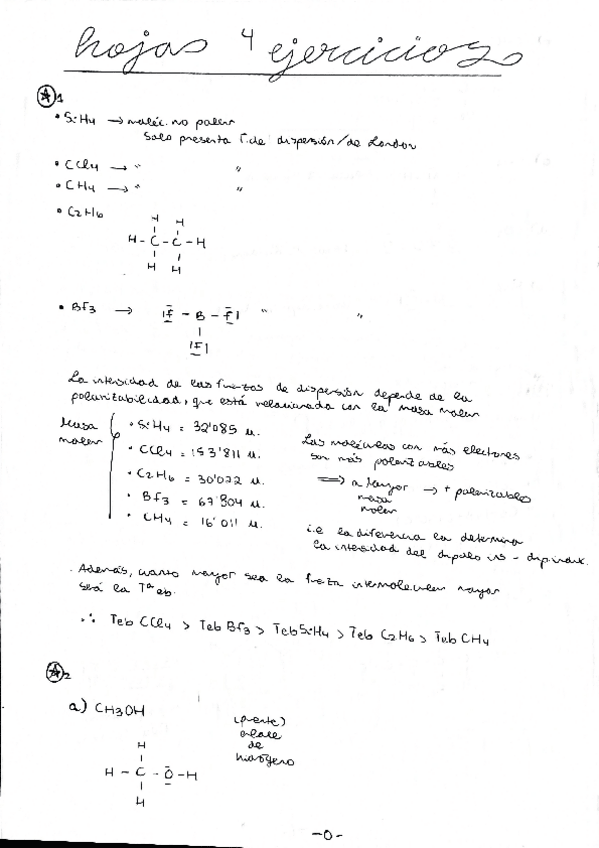 hojas 4 ejercicios
1
• SiH4 → moléc. no polar
Solo presenta F. de dispersión/de London
• CCl4 → " "
• CH4 → " "
• C2H6
H H
H - C - C - H
H H
• BF3 → |F - B - F| " "
|F|
La intensidad de las fuerzas de dispersión depende de la
polarizabilidad, que está relacionada con la masa molar
Masa
molar
• SiH4 = 32'085 u.
• CCl4 = 153'811 u.
• C2H6 = 30'022 u.
• BF3 = 67'804 u.
• CH4 = 16'011 u.
Las moléculas con más electrones
son más polarizables
⟹ a mayor → + polarizables
masa
molar
i.e la diferencia la determina
la intensidad del dipolo ins - dip.induc.
Además, cuanto mayor sea la fuerza intermolecular mayor
será la Tª eb.
∴ Teb CCl4 > Teb BF3 > Teb SiH4 > Teb C2H6 > Teb CH4
2
a) CH3OH
(puente)
enlace
de
hidrógeno
H
H - C - O - H
H
-0-